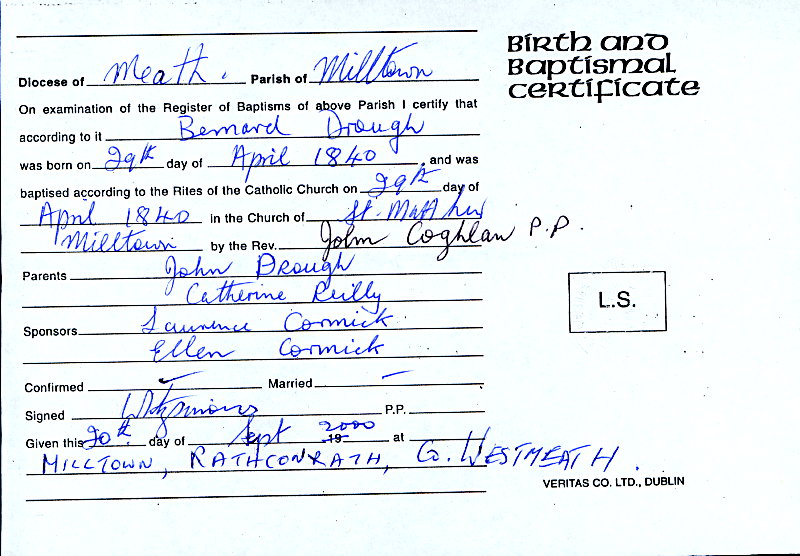 Birth and
Baptismal
Certificate
Diocese of Meath. Parish of Milltown
On examination of the Register of Baptisms of above Parish I certify that
according to it Bernard Drough
was born on 29th day of April 1840, and was
baptised according to the Rites of the Catholic Church on 29th day of
April 1840 in the Church of St. Matthew
Milltown by the Rev. John Coghlan P.P.
Parents John Drough
Catherine Reilly
Sponsors Laurence Cormick
Ellen Cormick
L.S.
Confirmed — Married —
Signed P.P.
Given this 20th day of Sept 19 2000 at
MILLTOWN, RATHCONRATH, Co. WESTMEATH.
VERITAS CO. LTD., DUBLIN